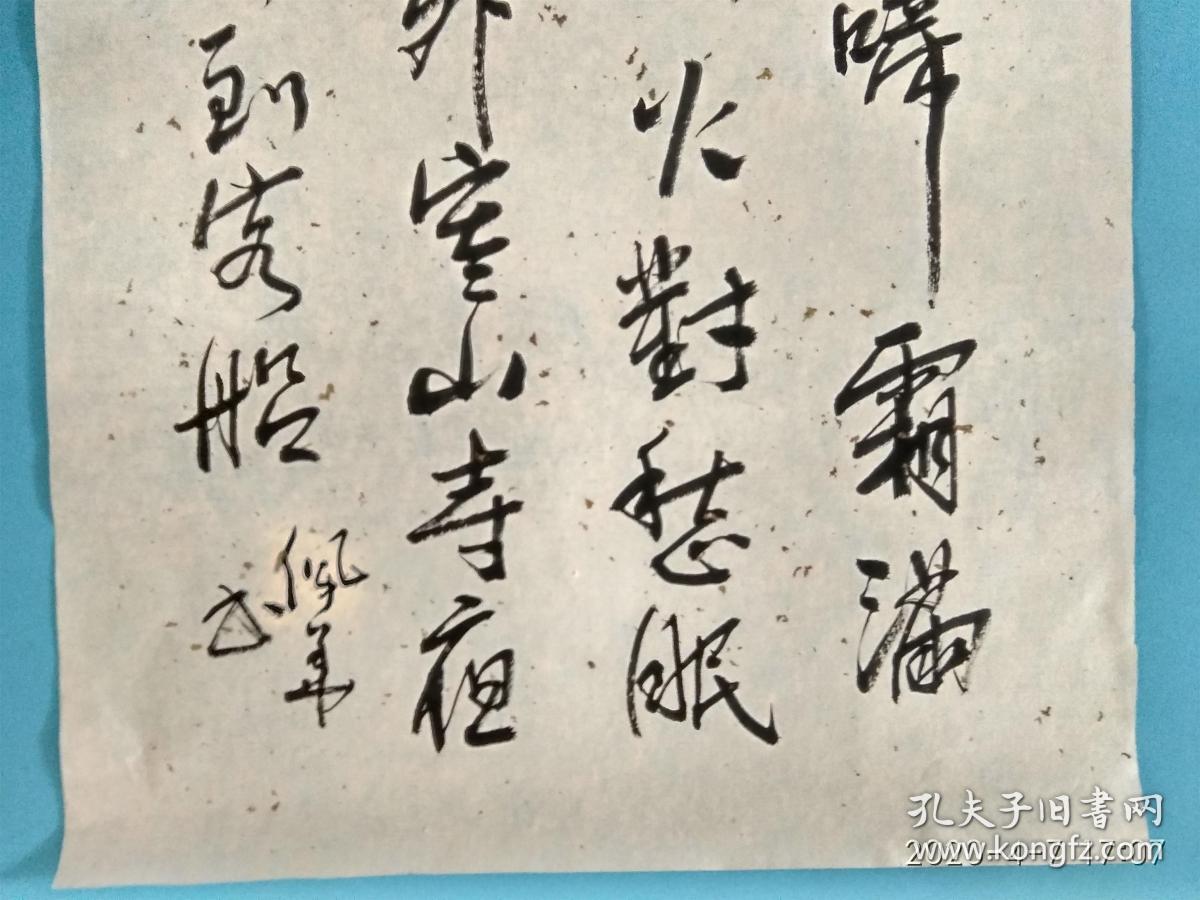 啼霜滿
火對愁眠
外寒山寺夜
到客船
佩華
书
孔夫子旧書网
www.kongfz.com